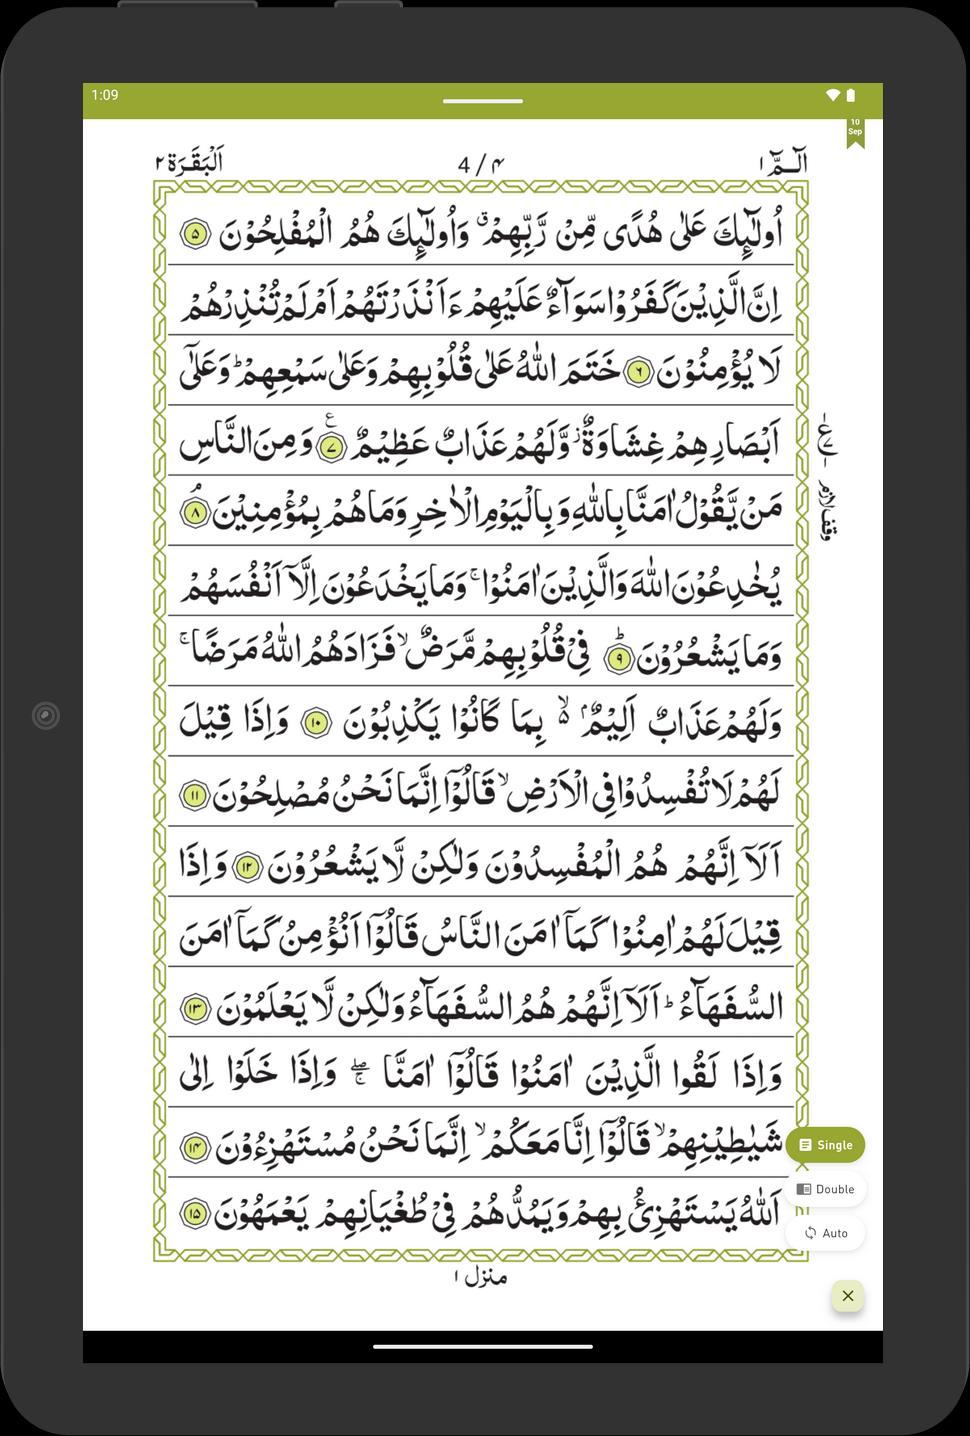 1:09
10
Sep
الٓـمّٓ ۱
4 / ۴
اَلْبَقَرَة ۲
اُولٰٓئِكَ عَلٰى هُدًى مِّنْ رَّبِّهِمْ ۗ وَاُولٰٓئِكَ هُمُ الْمُفْلِحُوْنَ ۵
اِنَّ الَّذِيْنَ كَفَرُوْا سَوَآءٌ عَلَيْهِمْ ءَاَنْذَرْتَهُمْ اَمْ لَمْ تُنْذِرْهُمْ
لَا يُؤْمِنُوْنَ ۶ خَتَمَ اللّٰهُ عَلٰى قُلُوْبِهِمْ وَعَلٰى سَمْعِهِمْ ؕ وَعَلٰٓى
اَبْصَارِهِمْ غِشَاوَةٌ ز وَّلَهُمْ عَذَابٌ عَظِيْمٌ ۷ ع وَمِنَ النَّاسِ
ع ۷
مَنْ يَّقُوْلُ اٰمَنَّا بِاللّٰهِ وَبِالْيَوْمِ الْاٰخِرِ وَمَا هُمْ بِمُؤْمِنِيْنَ ۘ ۸
وقف لازم
يُخٰدِعُوْنَ اللّٰهَ وَالَّذِيْنَ اٰمَنُوْا ۚ وَمَا يَخْدَعُوْنَ اِلَّآ اَنْفُسَهُمْ
وَمَا يَشْعُرُوْنَ ؕ ۹ فِيْ قُلُوْبِهِمْ مَّرَضٌ ۙ فَزَادَهُمُ اللّٰهُ مَرَضًا ۚ
وَلَهُمْ عَذَابٌ اَلِيْمٌۢ ۙ۵ بِمَا كَانُوْا يَكْذِبُوْنَ ۱۰ وَاِذَا قِيْلَ
لَهُمْ لَا تُفْسِدُوْا فِى الْاَرْضِ ۙ قَالُوْٓا اِنَّمَا نَحْنُ مُصْلِحُوْنَ ۱۱
اَلَآ اِنَّهُمْ هُمُ الْمُفْسِدُوْنَ وَلٰكِنْ لَّا يَشْعُرُوْنَ ۱۲ وَاِذَا
قِيْلَ لَهُمْ اٰمِنُوْا كَمَآ اٰمَنَ النَّاسُ قَالُوْٓا اَنُؤْمِنُ كَمَآ اٰمَنَ
السُّفَهَآءُ ؕ اَلَآ اِنَّهُمْ هُمُ السُّفَهَآءُ وَلٰكِنْ لَّا يَعْلَمُوْنَ ۱۳
وَاِذَا لَقُوا الَّذِيْنَ اٰمَنُوْا قَالُوْٓا اٰمَنَّا ۖۚ وَاِذَا خَلَوْا اِلٰى
شَيٰطِيْنِهِمْ ۙ قَالُوْٓا اِنَّا مَعَكُمْ ۙ اِنَّمَا نَحْنُ مُسْتَهْزِءُوْنَ ۱۴
اَللّٰهُ يَسْتَهْزِئُ بِهِمْ وَيَمُدُّهُمْ فِيْ طُغْيَانِهِمْ يَعْمَهُوْنَ ۱۵
منزل ۱
Single
Double
Auto